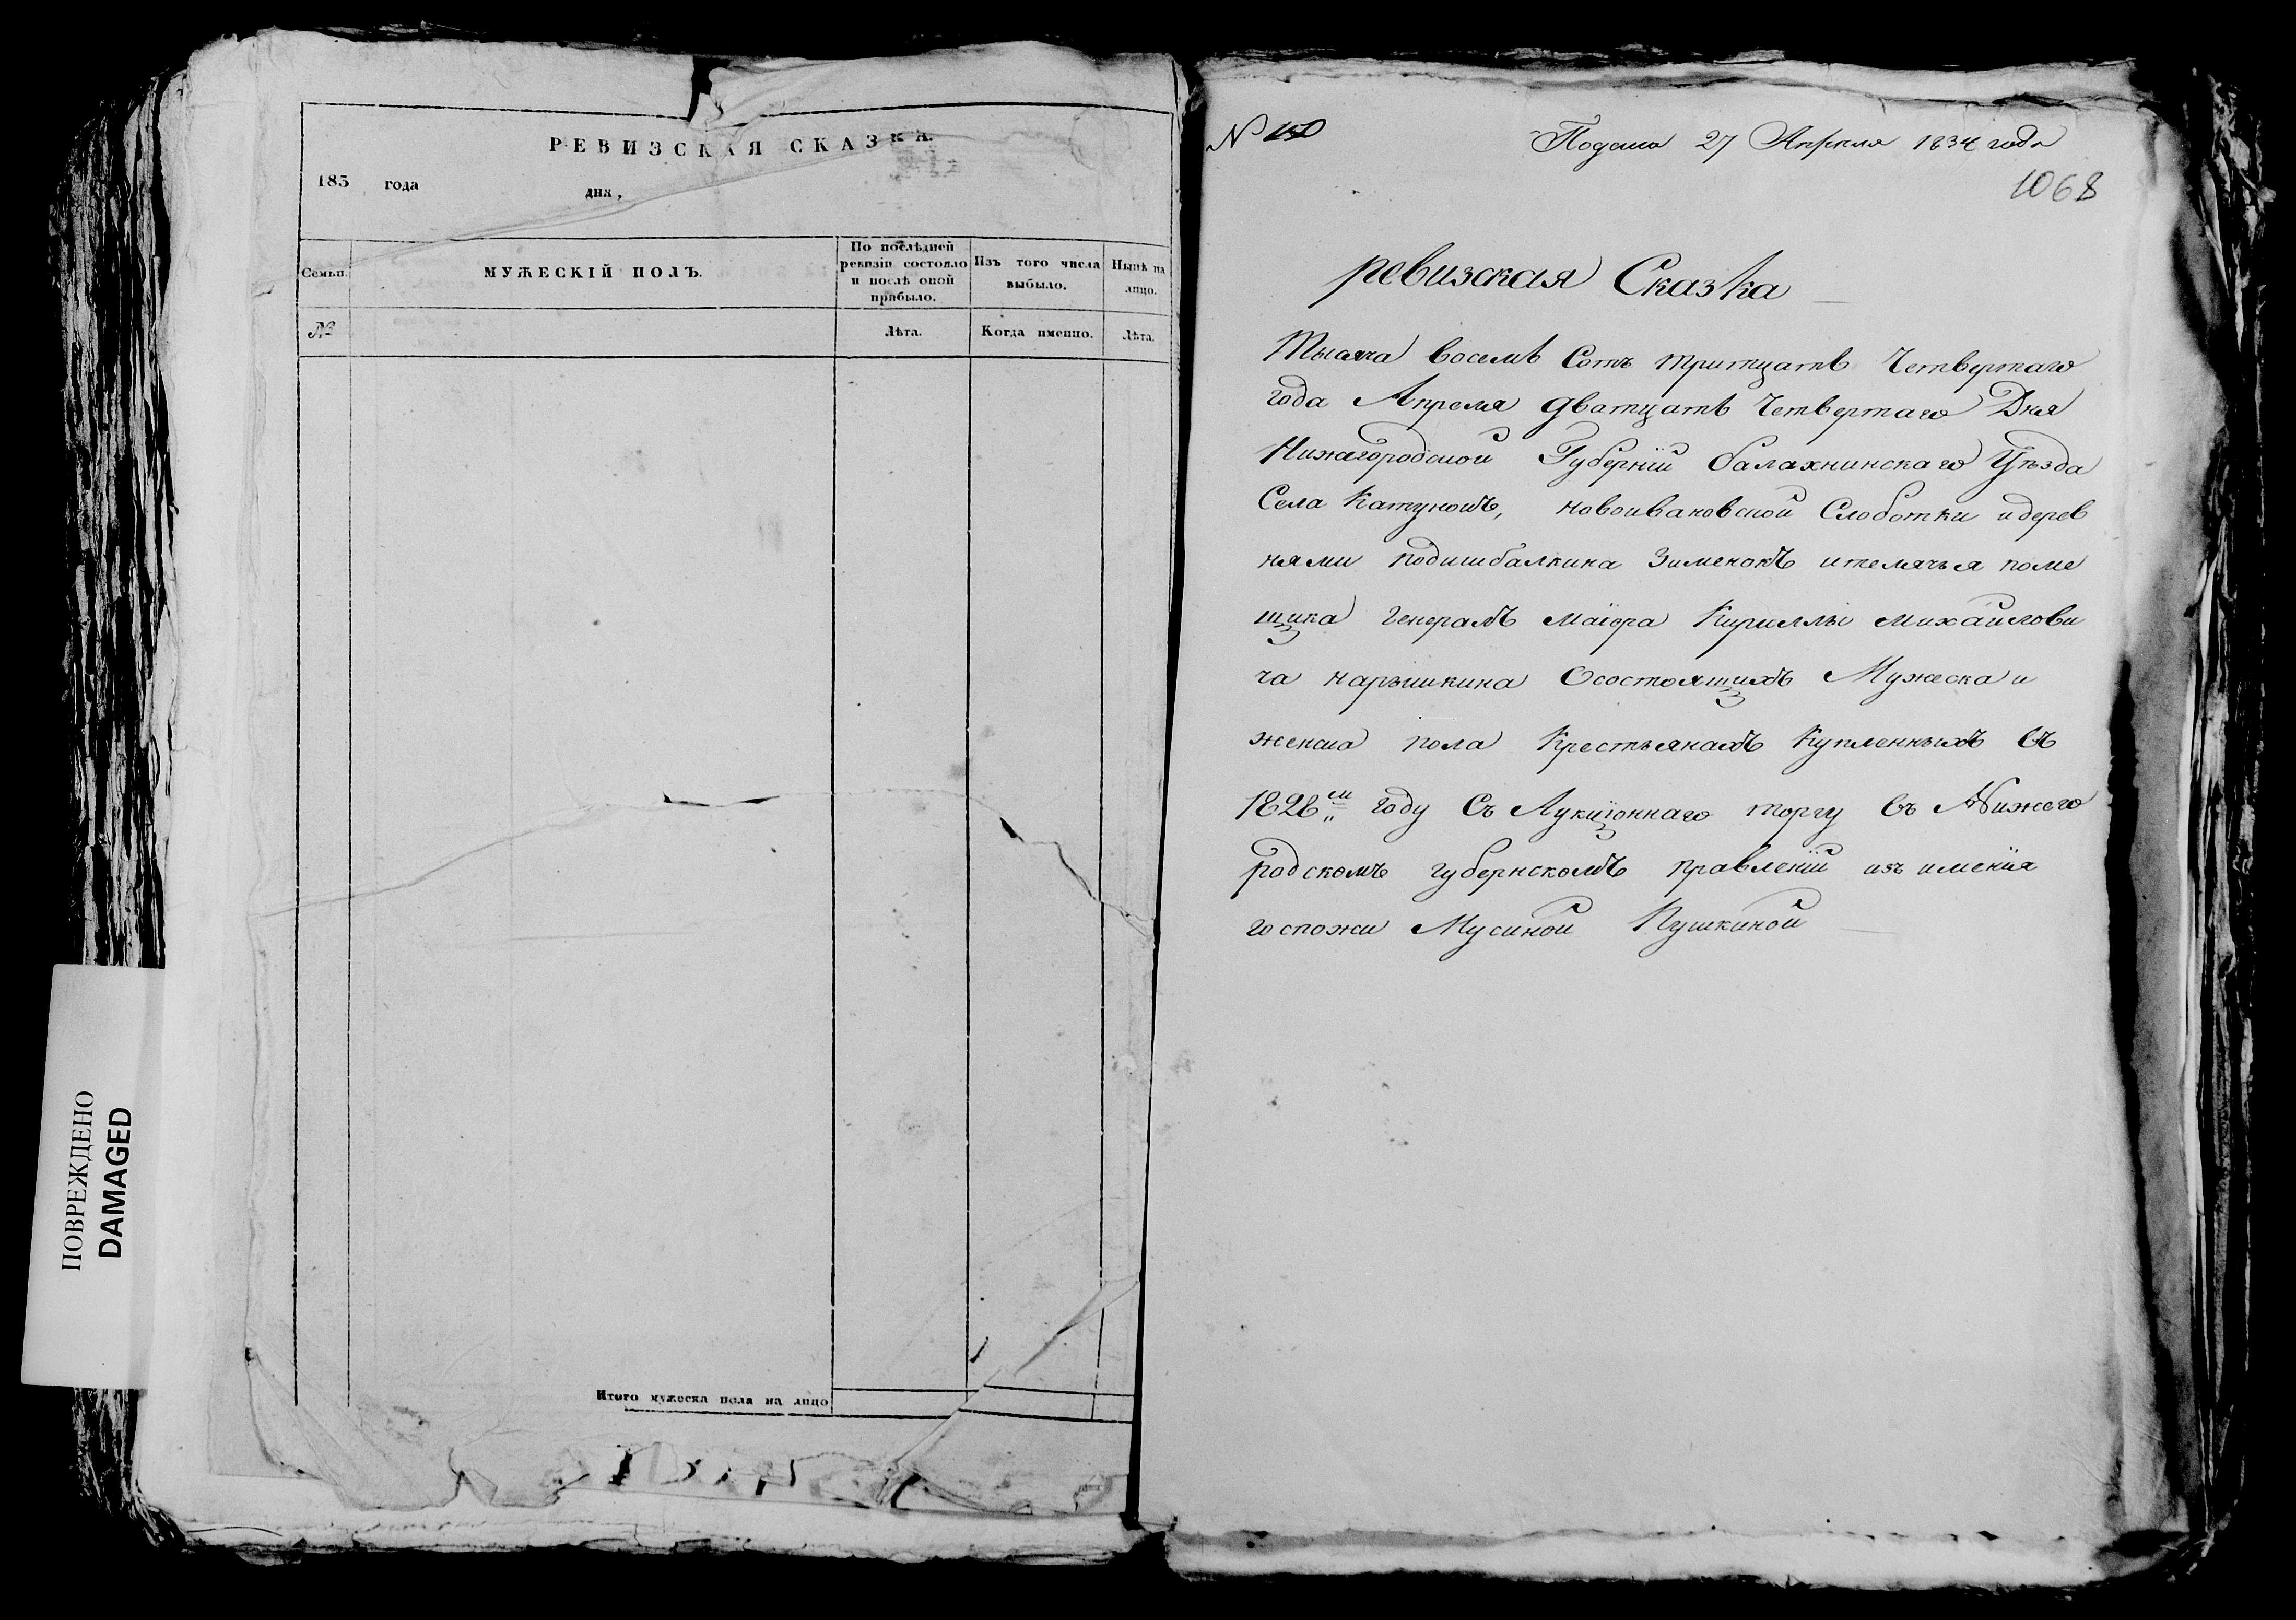 РЕВИЗСКАЯ СКАЗКА.
183 года дня,
Семьи.
МУЖЕСКІЙ ПОЛЪ.
По послѣдней ревизіи состояло и послѣ оной прибыло.
Изъ того числа выбыло.
Нынѣ на лицо.
№
Лѣта.
Когда именно.
Лѣта.
Итого мужеска пола на лицо
ПОВРЕЖДЕНО
DAMAGED
N 150
Подана 27 Апреля 1834 года
1068
ревизская Сказка
Тысяча восемь Сотъ тритцать Четвертаго
года Апреля дватцать Четвертаго Дня
Нижегородской Губерніи балахнинскаго Уѣзда
Села Катунокъ, новоивановской Слоботки идерев
нями подишбалкина Зименокъ ителячья поме
щика Генералъ маіора Кириллы михайлови
ча нарышкина Осостоящихъ Мужеска и
женска пола Крестьянахъ Купленныхъ въ
1828м году Съ Аукціоннаго торгу въ Нижего
родскомъ губернскомъ правленіи изъ имѣнія
госпожи Мусиной Пушкиной